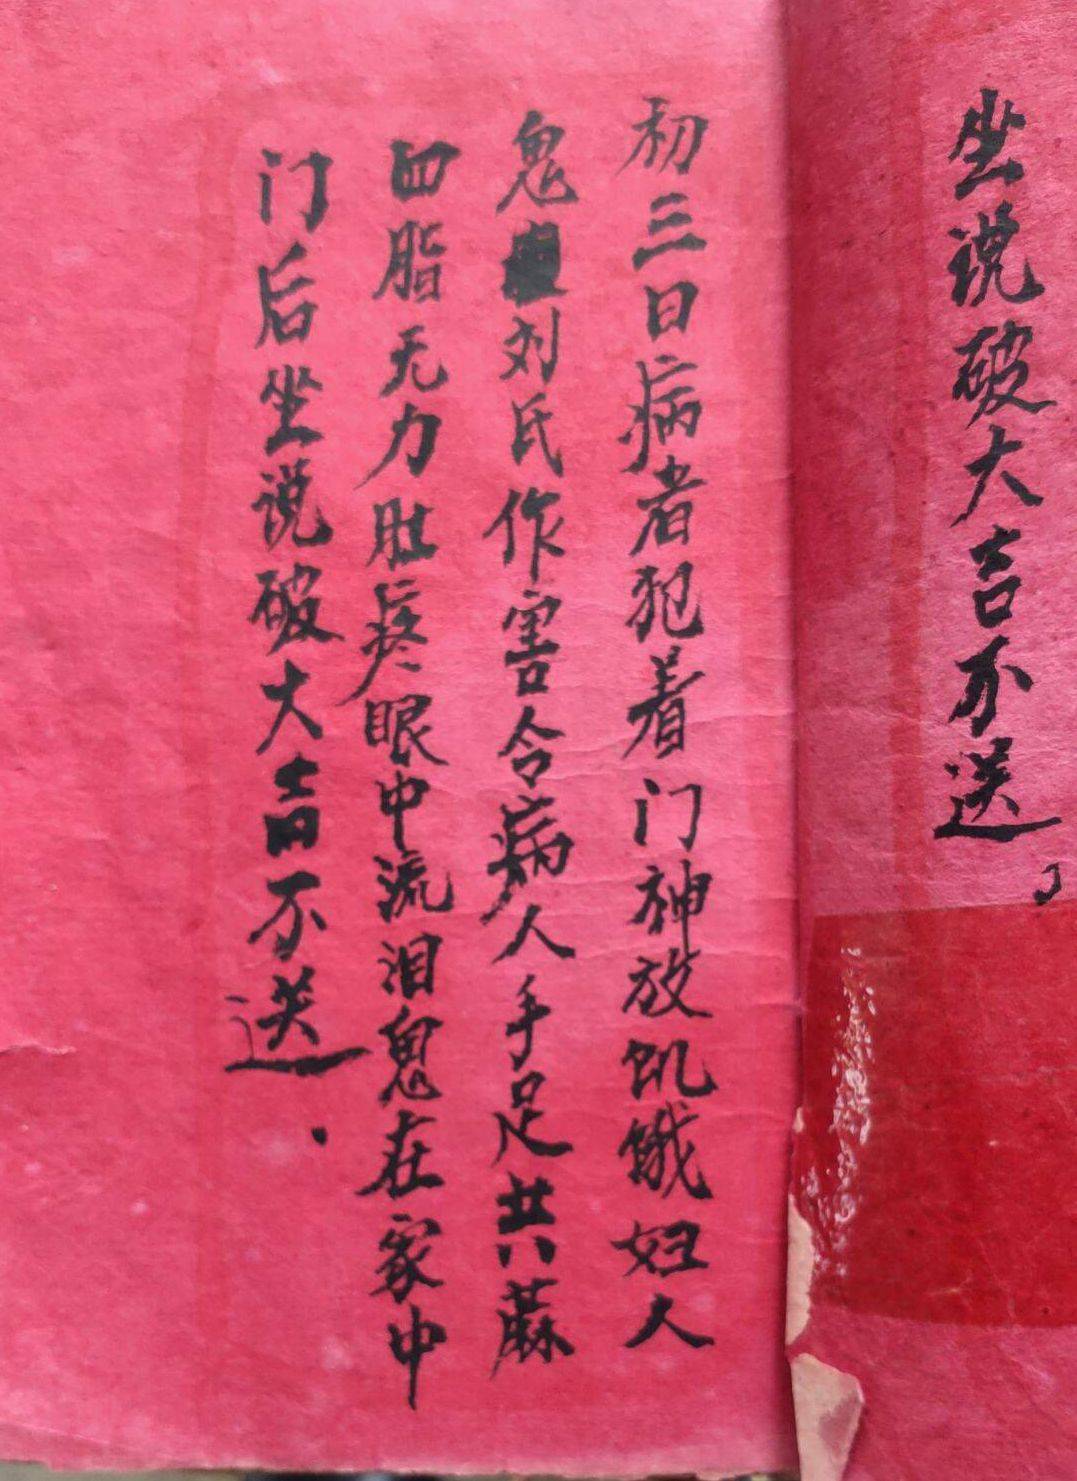 坐说破大吉不送
初三日病者犯着门神放饥饿妇人
鬼刘氏作害令病人手足共蔴
四脂无力肚疼眼中流泪鬼在家中
门后坐说破大吉不送.